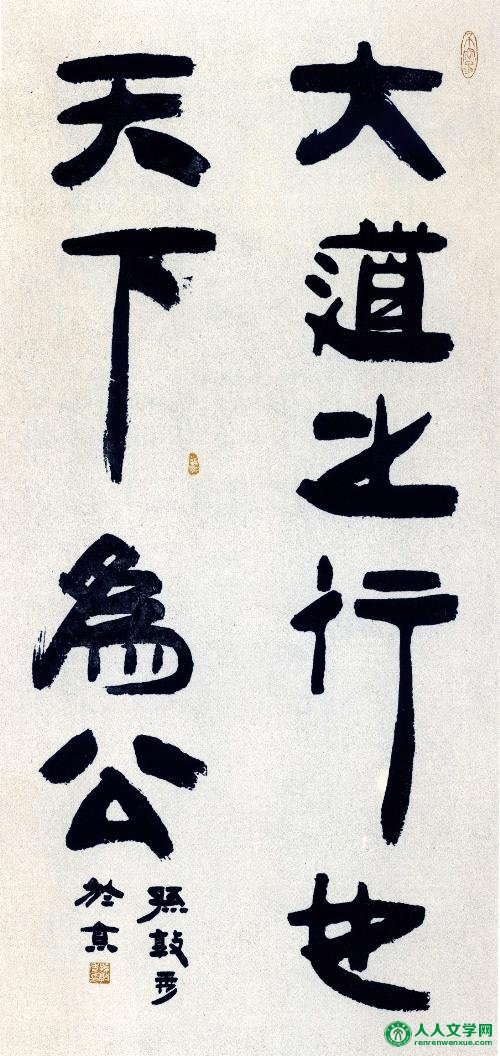 大道之行也
天下為公
孫敦秀
於京
人人文学网
renrenwenxue.com